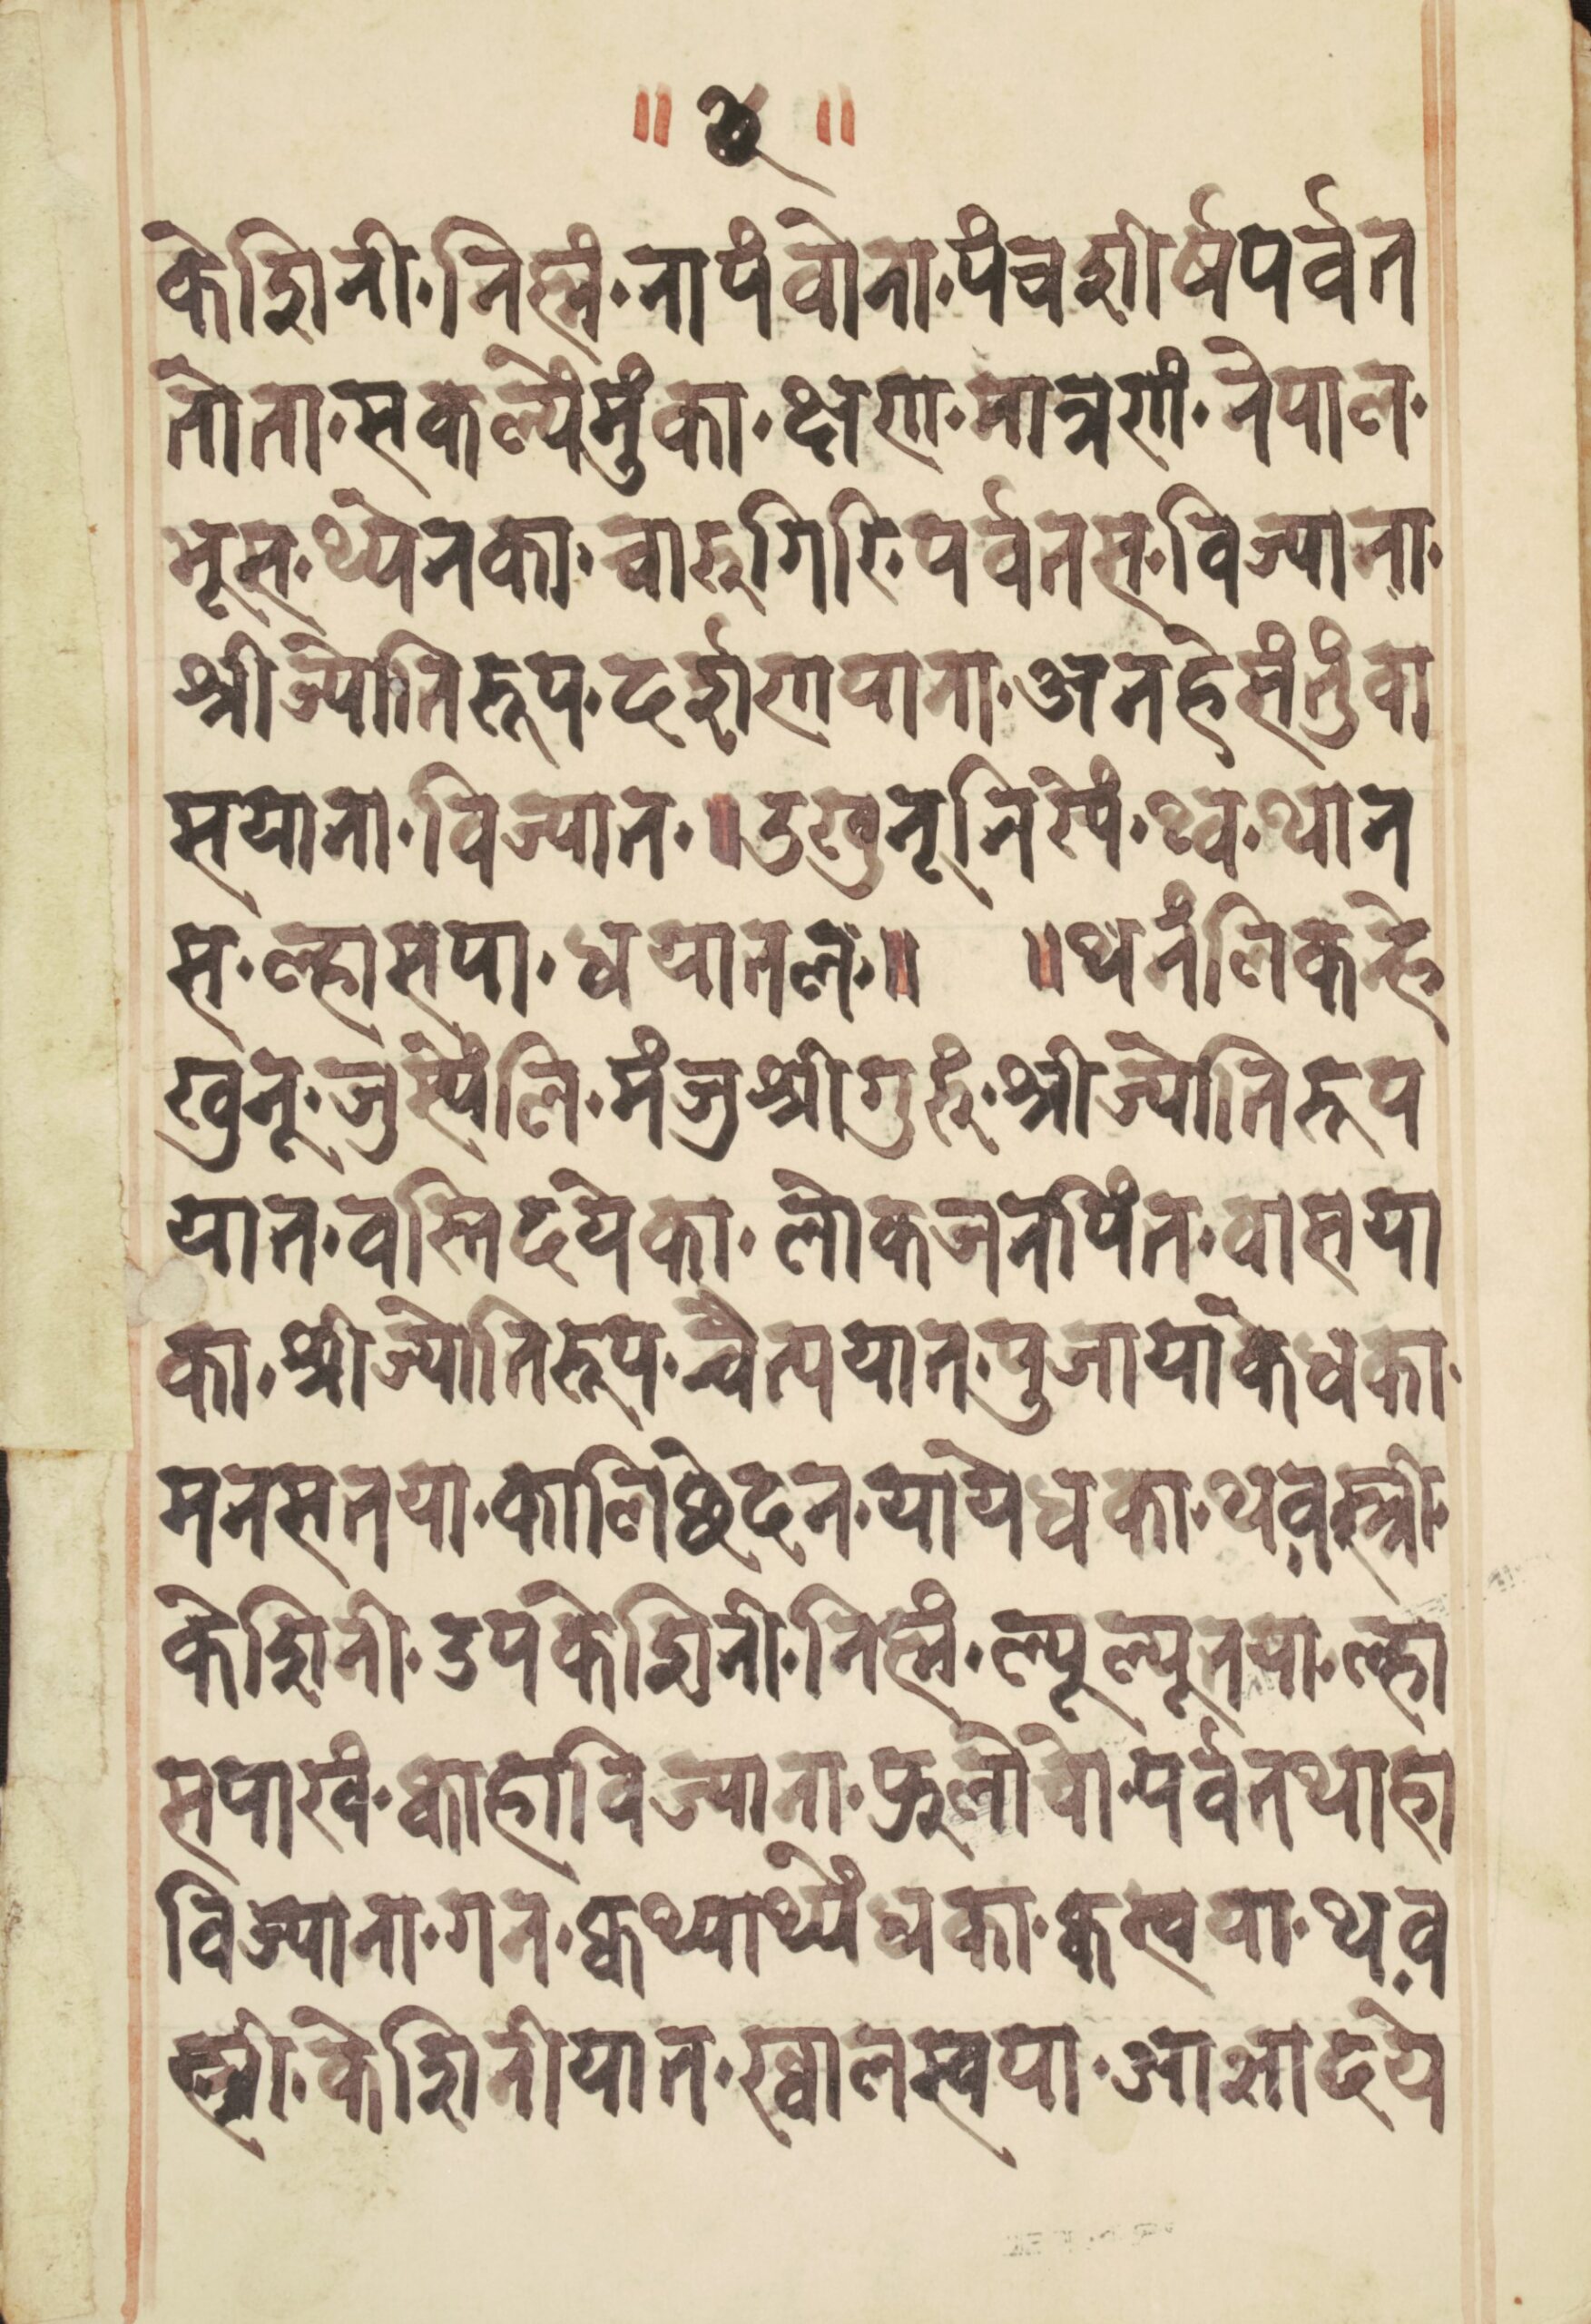 ॥ ४ ॥
केशिनी·निह्मं·नापं वोना·पंचशीर्षपर्वत
तोता·सकल्यें मुंका·क्षणा·मात्रणं·नेपाल·
भूस·थ्येनका·चारुगिरि पर्वतस·विज्याना·
श्रीज्योतिरूप·दर्शणयाना·अनहे संतुवा
सयाना·विज्यात·॥उखुनूनिस्यं·थ्व·थान
स·ल्हासपा·धयातल·॥ ॥थनंलिकन्हे
खुनू·जुस्येंलि·मंजुश्रीगुरुं·श्रीज्योतिरूप
यात·वस्तिदयेका·लोकजनपिंत·वासया
का·श्रीज्योतिरूप·चैत्ययात·पुजायाकेधका·
मनसतया·कालिछेदन·यायेधका·थव़स्त्री·
केशिनी·उपकेशिनी·निह्मं·ल्यूल्यूतया·ल्हा
सपाखं·क्वाहाविज्याना·फूलोचो·पर्वतथाहा
विज्याना·गन·क्वथ्यार्थ्यें धका·क्वस्वया·थव़
स्त्री·केशिनीयात·ख्वालस्वया·आज्ञादये